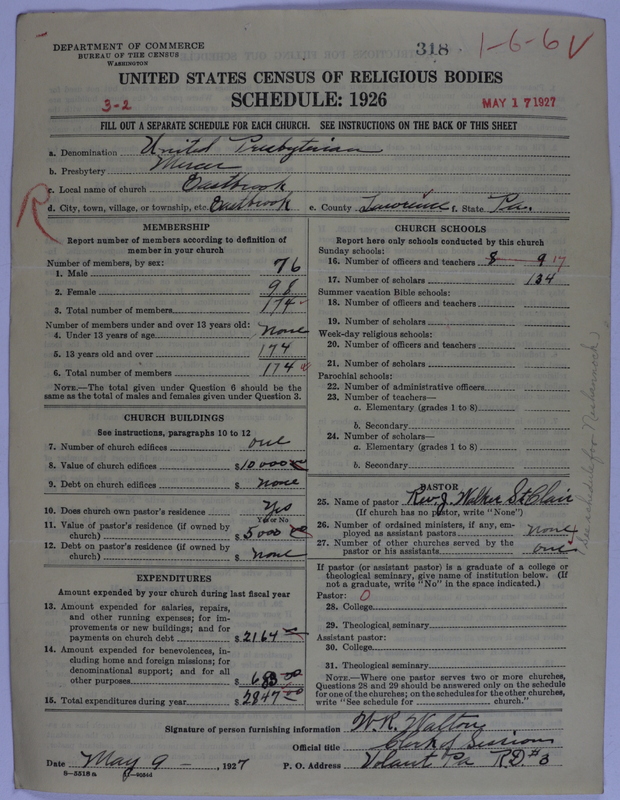 DEPARTMENT OF COMMERCE
BUREAU OF THE CENSUS
WASHINGTON
318
1-6-6 V
UNITED STATES CENSUS OF RELIGIOUS BODIES
3-2
SCHEDULE: 1926
MAY 17 1927
FILL OUT A SEPARATE SCHEDULE FOR EACH CHURCH. SEE INSTRUCTIONS ON THE BACK OF THIS SHEET
a. Denomination United Presbyterian
b. Presbytery Mercer
c. Local name of church Eastbrook
R
d. City, town, village, or township, etc. Eastbrook e. County Lawrence f. State Pa.
MEMBERSHIP
Report number of members according to definition of
member in your church
Number of members, by sex:
1. Male 76
2. Female 98
3. Total number of members 174
Number of members under and over 13 years old:
4. Under 13 years of age None
5. 13 years old and over 174
6. Total number of members 174
NOTE.—The total given under Question 6 should be
same as the total of males and females given under Question 3.
CHURCH BUILDINGS
See instructions, paragraphs 10 to 12
7. Number of church edifices one
8. Value of church edifices $10000 00
9. Debt on church edifices $ none
10. Does church own pastor's residence Yes
Yes or No
11. Value of pastor's residence (if owned by
church) $5000 00
12. Debt on pastor's residence (if owned by
church) $ none
EXPENDITURES
Amount expended by your church during last fiscal year
13. Amount expended for salaries, repairs,
and other running expenses; for im-
provements or new buildings; and for
payments on church debt $2164
14. Amount expended for benevolences, in-
cluding home and foreign missions; for
denominational support; and for all
other purposes $ 683 00
15. Total expenditures during year $2847 00
CHURCH SCHOOLS
Report here only schools conducted by this church
Sunday schools:
16. Number of officers and teachers 8 9 17
17. Number of scholars 134
Summer vacation Bible schools:
18. Number of officers and teachers
19. Number of scholars
Week-day religious schools:
20. Number of officers and teachers
21. Number of scholars
Parochial schools:
22. Number of administrative officers
23. Number of teachers—
a. Elementary (grades 1 to 8)
b. Secondary
24. Number of scholars—
a. Elementary (grades 1 to 8)
b. Secondary
PASTOR
25. Name of pastor Rev. J. Walker St Clair
(If church has no pastor, write "None")
26. Number of ordained ministers, if any, em-
ployed as assistant pastors none
27. Number of other churches served by the
pastor or his assistants one
If pastor (or assistant pastor) is a graduate of a college or
theological seminary, give name of institution below. (If
not a graduate, write "No" in the space indicated.)
Pastor: O
28. College
29. Theological seminary
Assistant pastor:
30. College
31. Theological seminary
NOTE.—Where one pastor serves two or more churches,
Questions 28 and 29 should be answered only on the schedule
for one of the churches; on the schedules for the other churches,
write "See schedule for church."
Signature of person furnishing information W. R. Walton
Official title Clerk of Sessions
Date May 9 , 1927 P. O. Address Volant Pa R.D. #3
8-5518 a